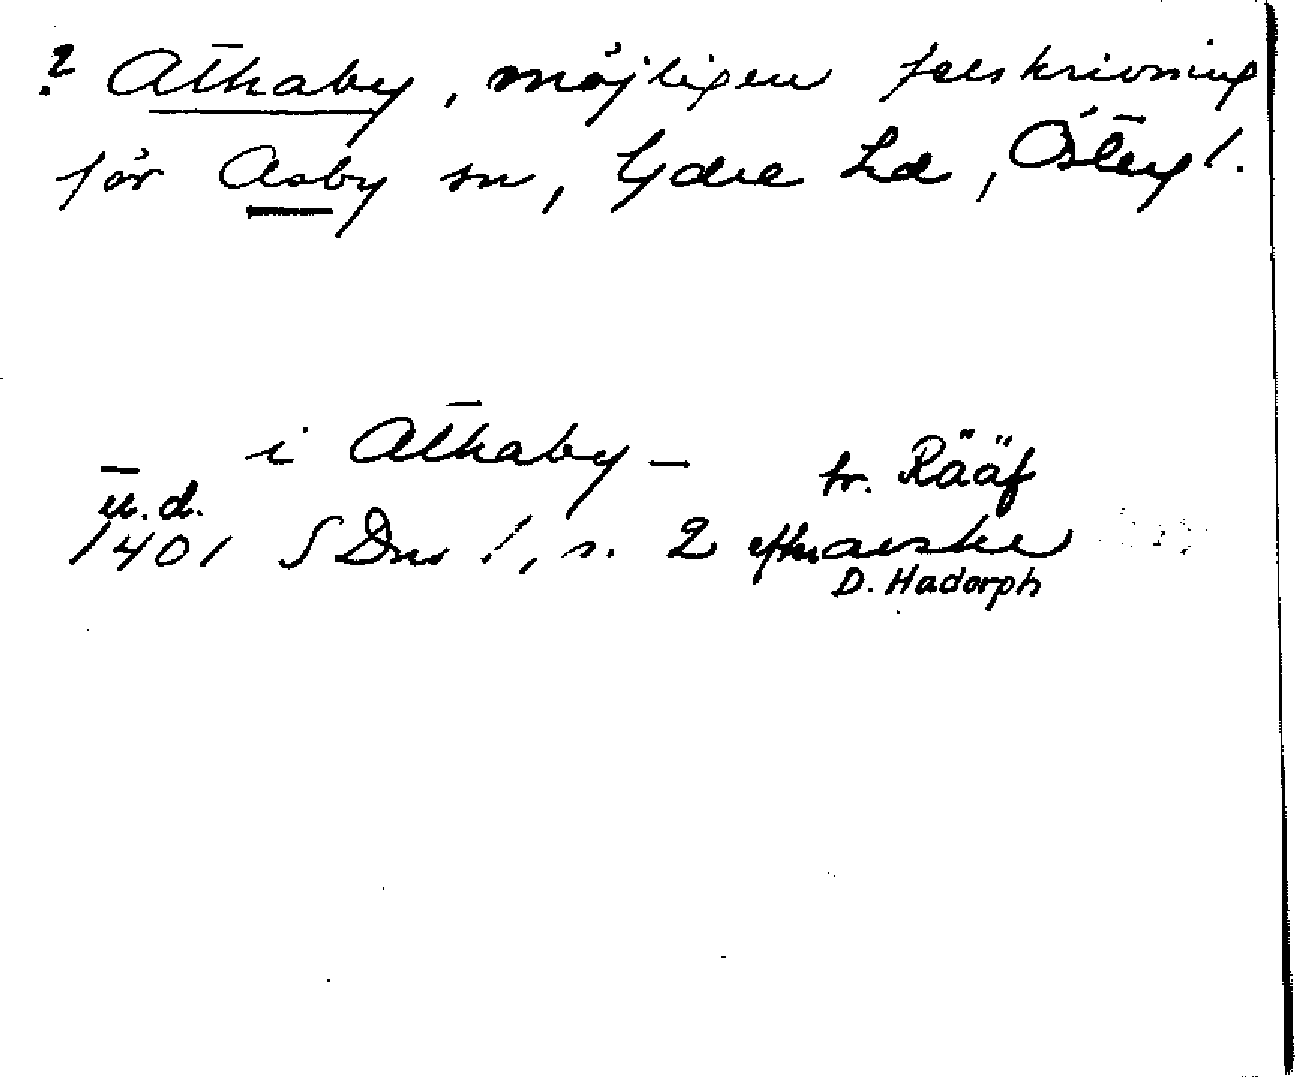 ? Athaby, möjligen felskrivning
för Asby sn, Ydre hd, Östergl.
i Athaby – tr. Rääf
u.d.
1401 SDns 1, s. 2 efter avskr
D. Hadorph